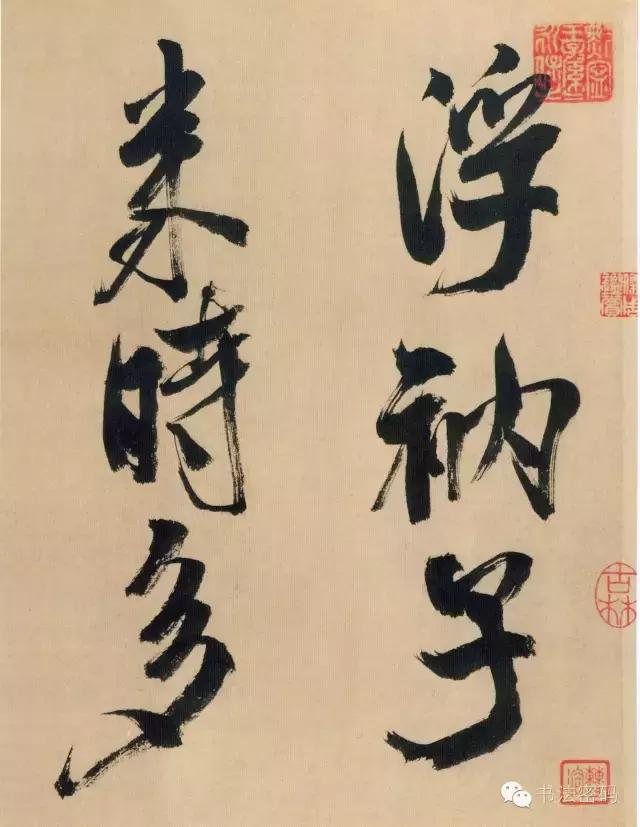 浮衲子
来時多
吉林
书法密码